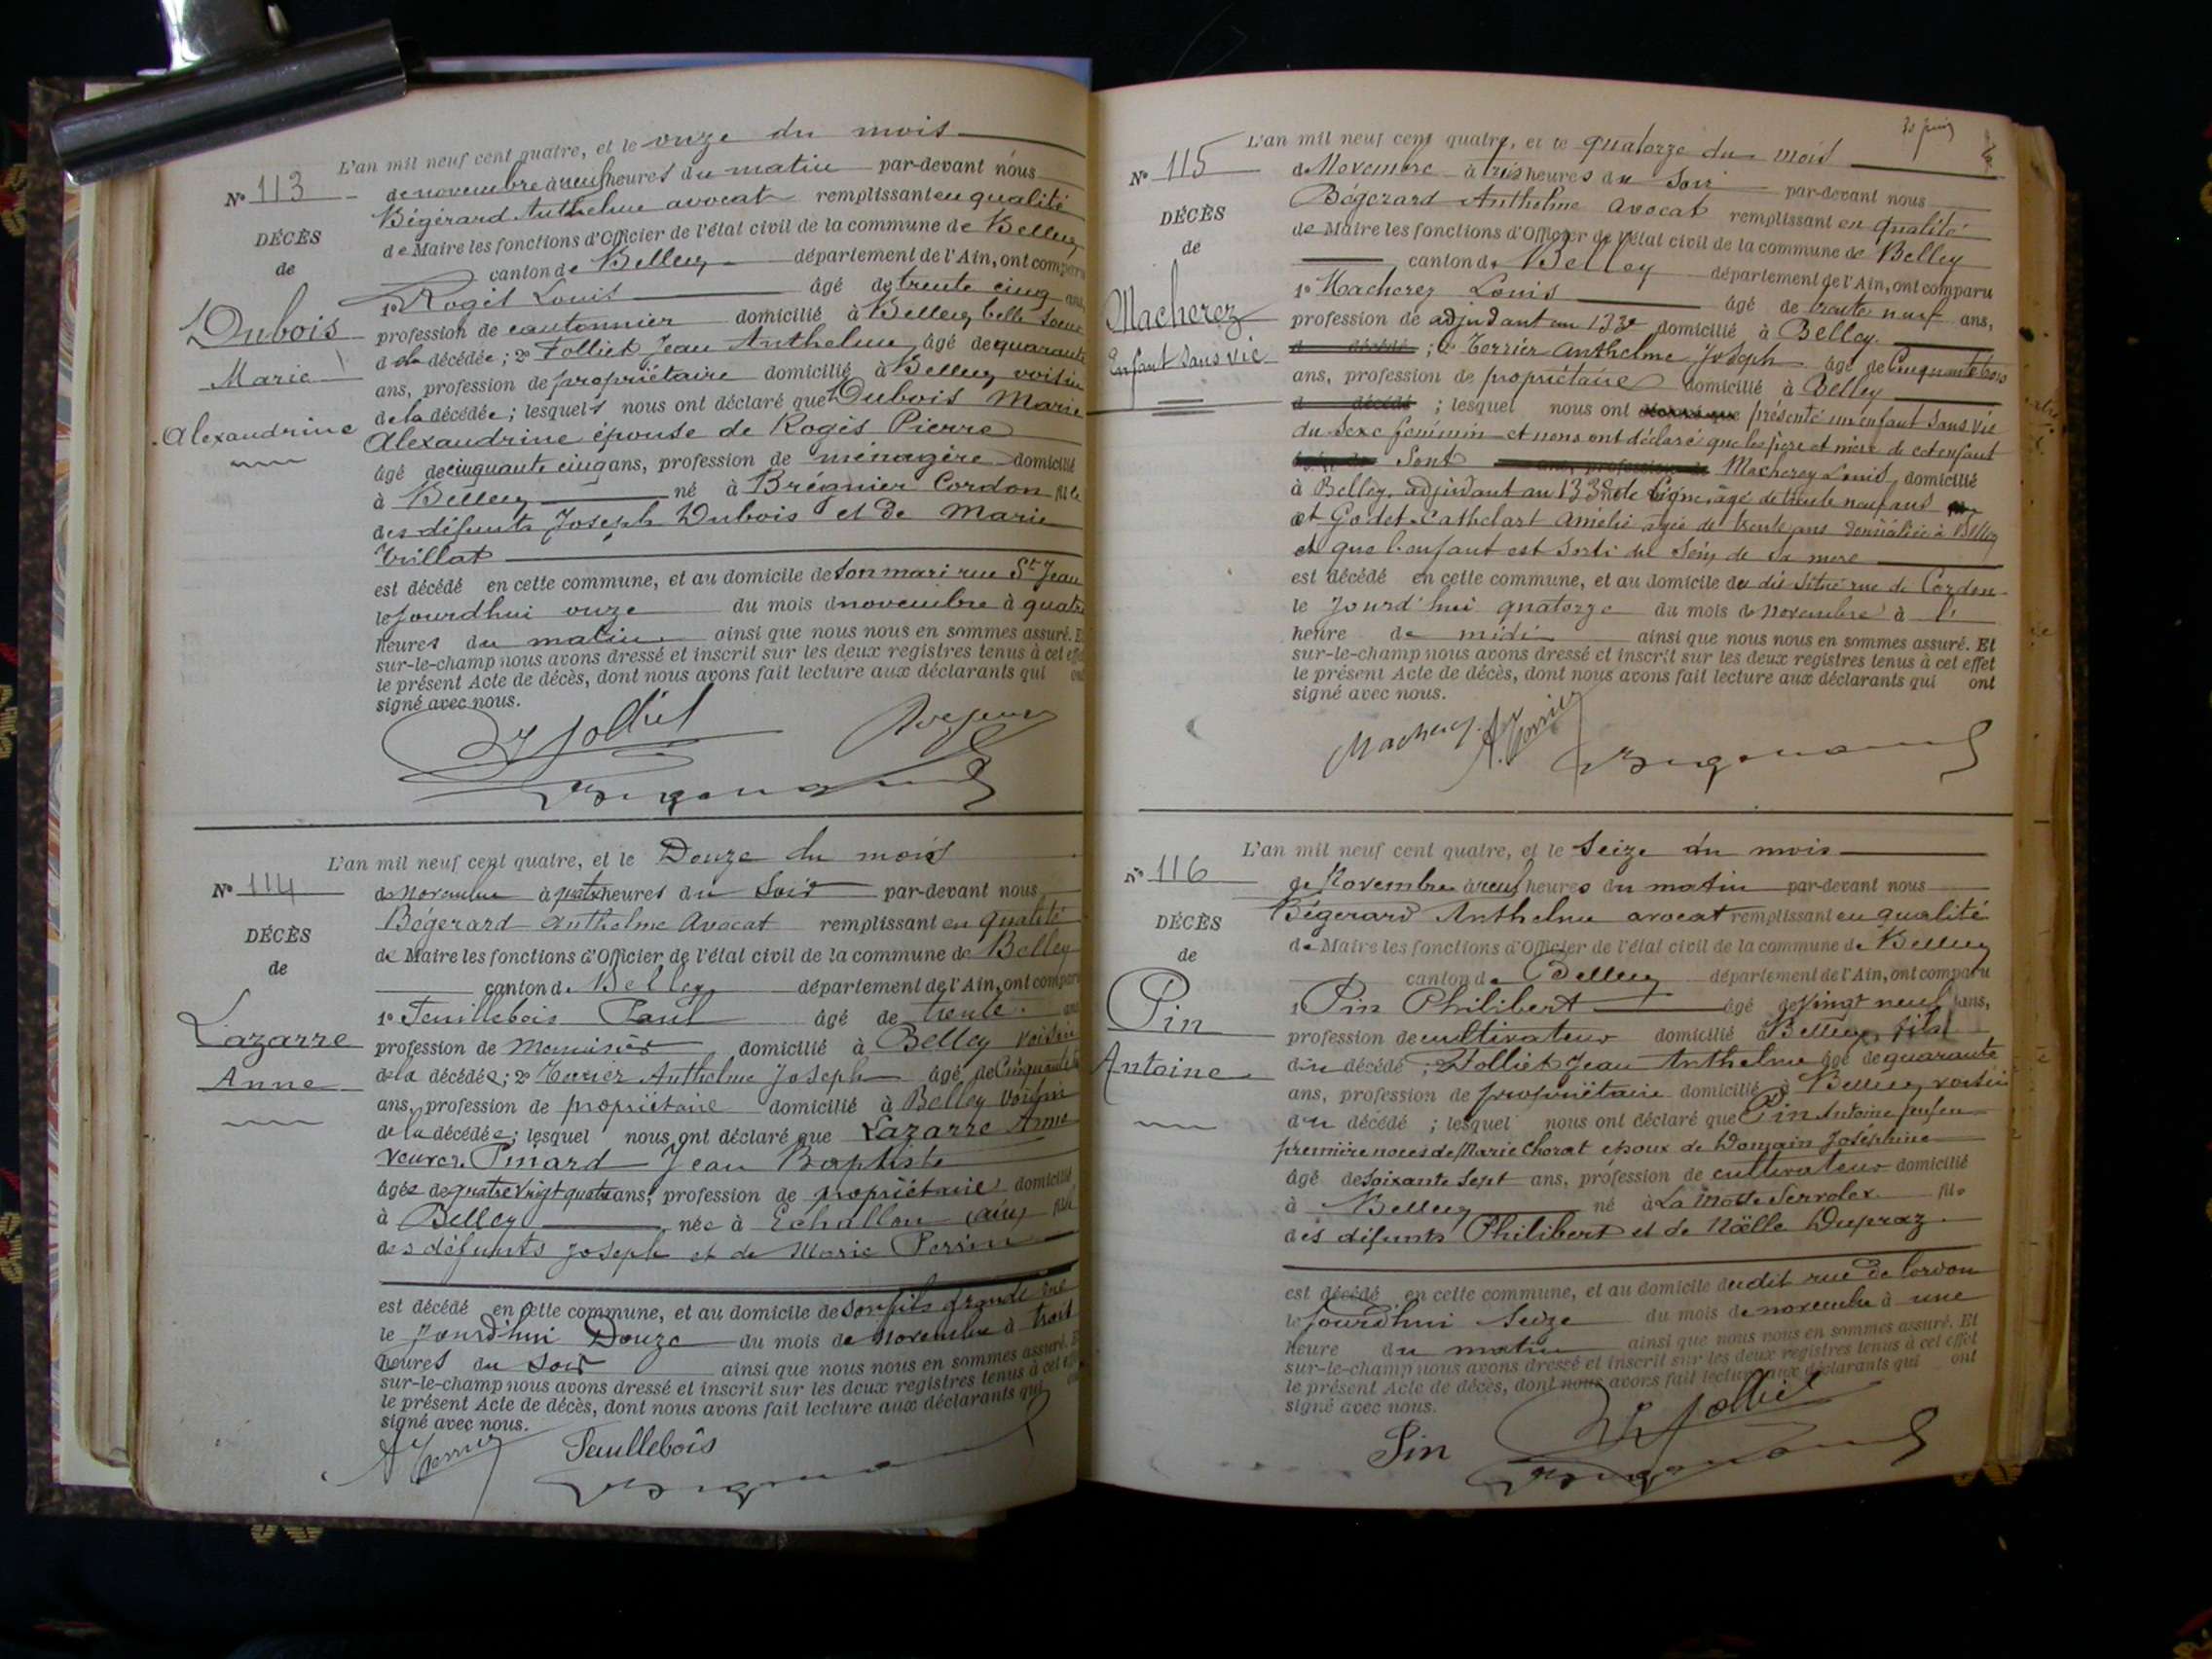 L'an mil neuf cent quatre, et le onze du mois
N° 113
de novembre à neuf heures du matin par-devant nous
Bégérard Anthelme avocat remplissant en qualité
DÉCÈS
de Maire les fonctions d'Officier de l'état civil de la commune de Belley
de
canton de Belley département de l'Ain, ont comparu
1° Rogès Louis âgé de trente cinq ans,
Dubois
profession de cantonnier domicilié à Belley belle soeur
de la décédée; 2° Folliet Jean Anthelme âgé de quarante
Marie
ans, profession de propriétaire domicilié à Belley voisin
de la décédée; lesquels nous ont déclaré que Dubois Marie
Alexandrine
Alexandrine épouse de Rogès Pierre
âgé de cinquante cinq ans, profession de ménagère domicilié
à Belley né à Brégnier Cordon fille
des défunts Joseph Dubois et de Marie
Trillat
est décédé en cette commune, et au domicile de son mari rue St Jean
le jourdhui onze du mois de novembre à quatre
heures du matin ainsi que nous nous en sommes assuré. Et
sur-le-champ nous avons dressé et inscrit sur les deux registres tenus à cet effet
le présent Acte de décès, dont nous avons fait lecture aux déclarants qui ont
signé avec nous.
Folliet
L'an mil neuf cent quatre, et le Douze du mois
N° 114
de novembre à quatre heures du Soir par-devant nous
Bégerard Anthelme Avocat remplissant en qualité
DÉCÈS
de Maire les fonctions d'Officier de l'état civil de la commune de Belley
de
canton de Belley département de l'Ain, ont comparu
1° Feuillebois Paul âgé de trente ans
Lazarre
profession de Menuisier domicilié à Belley voisin
Anne
de la décédée; 2° Terrier Anthelme Joseph âgé de Cinquante
ans, profession de propriétaire domicilié à Belley Voisin
de la décédée; lesquel nous ont déclaré que Lazarre Anne
veuve de Pinard Jean Baptiste
âgée de quatre vingt quatre ans, profession de propriétaire domicilié
à Belley née à Echallon (ain) fille
des défunts Joseph et de Marie Perrin
est décédé en cette commune, et au domicile de son fils grande rue
le jourd'hui Douze du mois de Novembre à trois
heures du soir ainsi que nous nous en sommes assuré. Et
sur-le-champ nous avons dressé et inscrit sur les deux registres tenus à cet effet
le présent Acte de décès, dont nous avons fait lecture aux déclarants qui
signé avec nous.
Feuillebois
L'an mil neuf cent quatre, et le quatorze du mois
N° 115
de Novembre à trois heures du Soir par-devant nous
Bégerard Anthelme avocat remplissant en qualité
DÉCÈS
de Maire les fonctions d'Officier de l'état civil de la commune de Belley
de
canton de Belley département de l'Ain, ont comparu
1° Macherez Louis âgé de trente neuf ans,
Macherez
profession de adjudant au 133e domicilié à Belley.
Enfant sans vie
d décédé; 2° Terrier Anthelme Joseph âgé de Cinquante trois
ans, profession de propriétaire domicilié à Belley
d décédé ; lesquel nous ont présenté un enfant sans vie
du sexe féminin et nous ont déclaré que les père et mère de cet enfant
Sont Macherez Louis, domicilié
à Belley, adjudant au 133e de Ligne, âgé de trente neuf ans
et Godet-Cathelart Amélie agée de trente ans domiciliée à Belley
et que l'enfant est sorti du sein de sa mère
est décédé en cette commune, et au domicile du dit situé rue de Cordon
le Jourd'hui quatorze du mois de novembre à l'
heure de midi ainsi que nous nous en sommes assuré. Et
sur-le-champ nous avons dressé et inscrit sur les deux registres tenus à cet effet
le présent Acte de décès, dont nous avons fait lecture aux déclarants qui ont
signé avec nous.
Macherez
L'an mil neuf cent quatre, et le Seize du mois
N° 116
de Novembre à neuf heures du matin par-devant nous
Bégerard Anthelme avocat remplissant en qualité
DÉCÈS
de Maire les fonctions d'Officier de l'état civil de la commune de Belley
de
canton de Belley département de l'Ain, ont comparu
Pin
1° Pin Philibert âgé de vingt neuf ans,
profession de cultivateur domicilié à Belley, fils
Antoine
du décédé; 2° Folliet Jean Anthelme âgé de quarante
ans, profession de propriétaire domicilié à Belley voisin
du décédé ; lesquel nous ont déclaré que Pin Antoine
première noces de Marie Chorat époux de Domain Joséphine
âgé de soixante sept ans, profession de cultivateur domicilié
à Belley né à La Motte Servolex fils
des défunts Philibert et de Naëlle Dupraz
est décédé en cette commune, et au domicile dudit rue de Cordon
le jourd'hui Seize du mois de novembre à une
heure du matin ainsi que nous nous en sommes assuré. Et
sur-le-champ nous avons dressé et inscrit sur les deux registres tenus à cet effet
le présent Acte de décès, dont nous avons fait lecture aux déclarants qui ont
signé avec nous.
Folliet
Pin